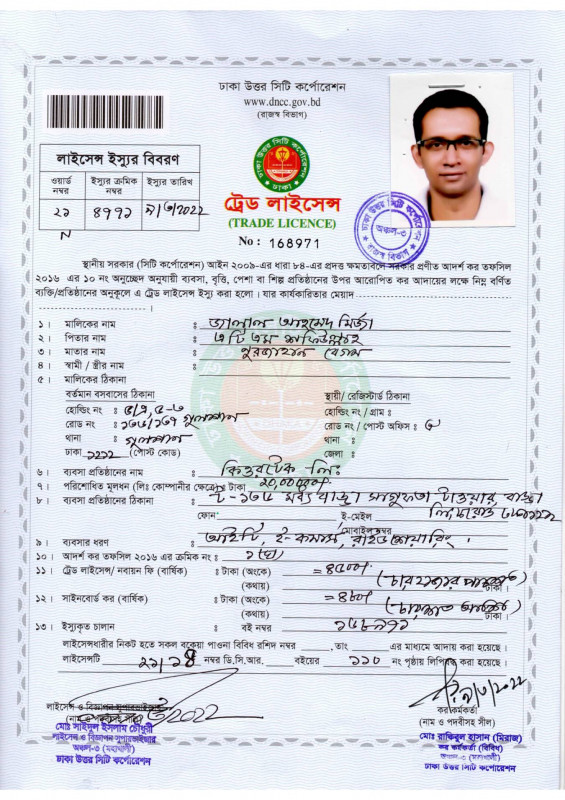 ঢাকা উত্তর সিটি কর্পোরেশন
www.dncc.gov.bd
(রাজস্ব বিভাগ)
লাইসেন্স ইস্যুর বিবরণ
ওয়ার্ড নম্বর
ইস্যুর ক্রমিক নম্বর
ইস্যুর তারিখ
২১
৪৭৭১
৯/৩/2022
N
ঢাকা উত্তর সিটি কর্পোরেশন
ঢাকা
ট্রেড লাইসেন্স
(TRADE LICENCE)
No : 168971
ঢাকা উত্তর সিটি কর্পোরেশন
অঞ্চল-৩
রাজস্ব বিভাগ
স্থানীয় সরকার (সিটি কর্পোরেশন) আইন ২০০৯-এর ধারা ৮৪-এর প্রদত্ত ক্ষমতাবলে সরকার প্রণীত আদর্শ কর তফসিল
২০১৬ এর ১০ নং অনুচ্ছেদ অনুযায়ী ব্যবসা, বৃত্তি, পেশা বা শিল্প প্রতিষ্ঠানের উপর আরোপিত কর আদায়ের লক্ষে নিম্ন বর্ণিত
ব্যক্তি/প্রতিষ্ঠানের অনুকূলে এ ট্রেড লাইসেন্স ইস্যু করা হলো । যার কার্যকারিতার মেয়াদ
১। মালিকের নাম : জালাল আহমেদ মির্জা
২। পিতার নাম : এ টি এম শফিউল্লাহ
৩। মাতার নাম : নুরজাহান বেগম
৪। স্বামী / স্ত্রীর নাম :
৫। মালিকের ঠিকানা
বর্তমান বসবাসের ঠিকানা
স্থায়ী/ রেজিস্টার্ড ঠিকানা
হোল্ডিং নং :
হোল্ডিং নং / গ্রাম :
রোড নং : গুলশান
রোড নং / পোস্ট অফিস :
থানা : গুলশান
থানা :
ঢাকা ১২১২ (পোস্ট কোড)
জেলা :
৬। ব্যবসা প্রতিষ্ঠানের নাম : লিঃ
৭। পরিশোধিত মূলধন (লিঃ কোম্পানীর ক্ষেত্রে) : টাকা
৮। ব্যবসা প্রতিষ্ঠানের ঠিকানা : মধ্য বাড্ডা টাওয়ার বাড্ডা
ফোন:
ই-মেইল
মোবাইল নম্বর
৯। ব্যবসার ধরণ : আইটি, ই-কমার্স, রাইডশেয়ারিং
১০। আদর্শ কর তফসিল ২০১৬ এর ক্রমিক নং : ১(ঘ)
১১। ট্রেড লাইসেন্স/ নবায়ন ফি (বার্ষিক) : টাকা (অংকে) =৪৫০০/
(কথায়) (চার হাজার পাঁচশত) টাকা।
১২। সাইনবোর্ড কর (বার্ষিক) : টাকা (অংকে) =৪৮০/
(কথায়) (চারশত আশি) টাকা।
১৩। ইস্যুকৃত চালান : বই নম্বর
লাইসেন্সধারীর নিকট হতে সকল বকেয়া পাওনা বিবিধ রশিদ নম্বর ,তাং এর মাধ্যমে আদায় করা হয়েছে।
লাইসেন্সটি নম্বর ডি.সি.আর. বইয়ের ১১০ নং পৃষ্ঠায় লিপিবদ্ধ করা হয়েছে।
লাইসেন্স ও বিজ্ঞাপন সুপারভাইজার
মোঃ সাইদুল ইসলাম চৌধুরী
লাইসেন্স ও বিজ্ঞাপন সুপারভাইজার
অঞ্চল-৩ (মহাখালী)
ঢাকা উত্তর সিটি কর্পোরেশন
৯/৩/২০২২
কর কর্মকর্তা
(নাম ও পদবীসহ সীল)
মোঃ রাকিবুল হাসান (মিরাজ)
কর কর্মকর্তা (বিবিধ)
অঞ্চল-৩ (মহাখালী)
ঢাকা উত্তর সিটি কর্পোরেশন